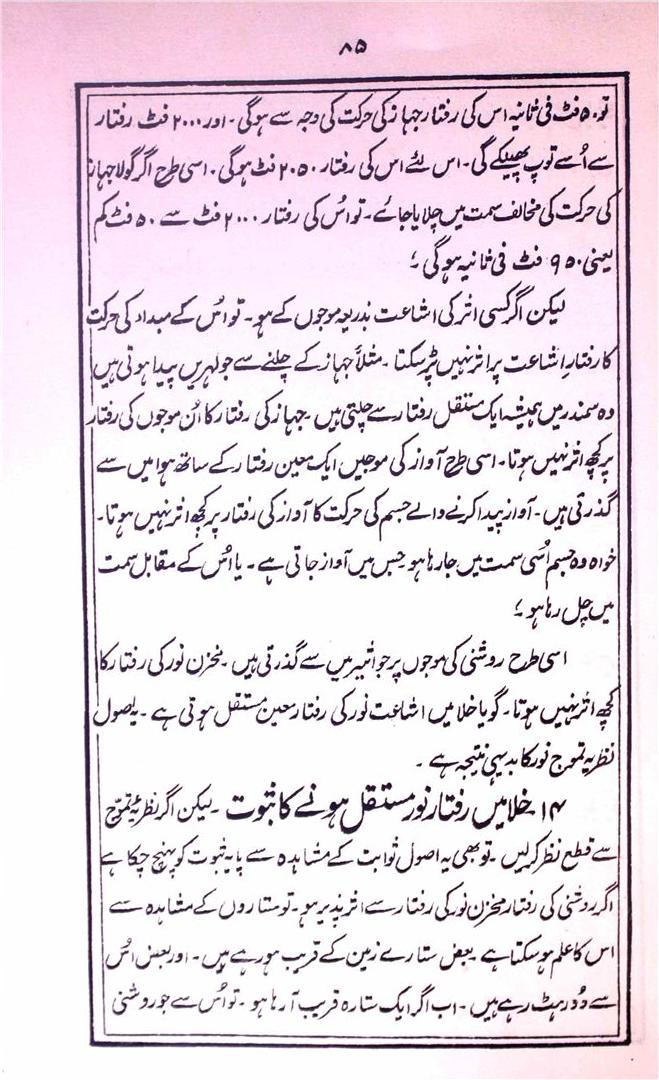 ۸۵
تو ۵۰ فٹ فی ثانیہ اس کی رفتار جہاز کی حرکت کی وجہ سے ہوگی۔ اور ۲۰۰۰ فٹ رفتار
سے اُسے توپ پھینکے گی۔ اس لئے اس کی رفتار ۲۰۵۰ فٹ ہوگی۔ اسی طرح اگر گولا جہاز
کی حرکت کی مخالف سمت میں چلایا جائے۔ تو اُس کی رفتار ۲۰۰۰ فٹ سے ۵۰ فٹ کم
یعنی ۹۵۰ فٹ فی ثانیہ ہوگی ؛
لیکن اگر کسی اثر کی اشاعت بذریعہ موجوں کے ہو۔ تو اُس کے مبداء کی حرکت
کا رفتارِ اشاعت پر اثر نہیں پڑ سکتا۔ مثلاً جہاز کے چلنے سے جو لہریں پیدا ہوتی ہیں
وہ سمندر میں ہمیشہ ایک مستقل رفتار سے چلتی ہیں۔ جہاز کی رفتار کا اُن موجوں کی رفتار
پر کچھ اثر نہیں ہوتا۔ اسی طرح آواز کی موجیں ایک معین رفتار کے ساتھ ہوا میں سے
گذرتی ہیں۔ آواز پیدا کرنے والے جسم کی حرکت کا آواز کی رفتار پر کچھ اثر نہیں ہوتا۔
خواہ وہ جسم اُسی سمت میں جا رہا ہو جس میں آواز جاتی ہے۔ یا اُس کے مقابل سمت
میں چل رہا ہو ؛
اسی طرح روشنی کی موجوں پر جو اثیر میں سے گذرتی ہیں۔ مخزن نور کی رفتار کا
کچھ اثر نہیں ہوتا۔ گویا خلا میں اشاعت نور کی رفتار معین مستقل ہوتی ہے۔ یہ اصول
نظریہ تموج نور کا بدیہی نتیجہ ہے۔
۱۴ خلا میں رفتار نور مستقل ہونے کا ثبوت۔ لیکن اگر نظریہ تموّج
سے قطع نظر کر لیں۔ تو بھی یہ اصول ثوابت کے مشاہدہ سے پایہ ثبوت کو پہنچ چکا ہے
اگر روشنی کی رفتار مخزن نور کی رفتار سے اثر پذیر ہو۔ تو ستاروں کے مشاہدہ سے
اس کا علم ہو سکتا ہے۔ بعض ستارے زمین کے قریب ہو رہے ہیں۔ اور بعض اُس
سے دُور ہٹ رہے ہیں۔ اب اگر ایک ستارہ قریب آ رہا ہو۔ تو اُس سے جو روشنی